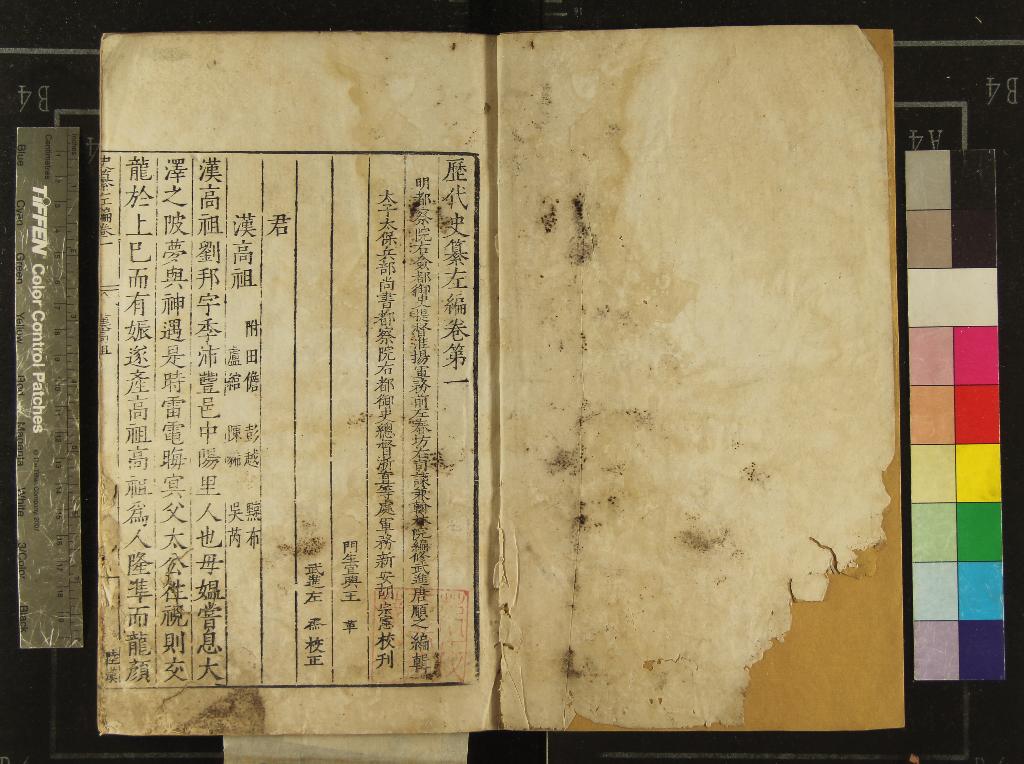 歷代史纂左編卷第一
明都察院右僉都御史提督淮揚軍務前左春坊右司諫兼翰林院編修武進唐順之編輯
太子太保兵部尚書都察院右都御史總督浙直等處軍務新安胡宗憲校刊
門生宜興王革
武進左烝校正
君
漢高祖 附田儋 彭越 黥布
盧綰 陳豨 吳芮
漢高祖劉邦字季沛豐邑中陽里人也母媼嘗息大
澤之陂夢與神遇是時雷電晦冥父太公往視則交
龍於上巳而有娠遂產高祖高祖爲人隆準而龍顏
TIFFEN Color Control Patches
Blue
Cyan
Green
Yellow
Red
Magenta
White
3/Color
Black
Centimetres
Inches
B4
B4
A4